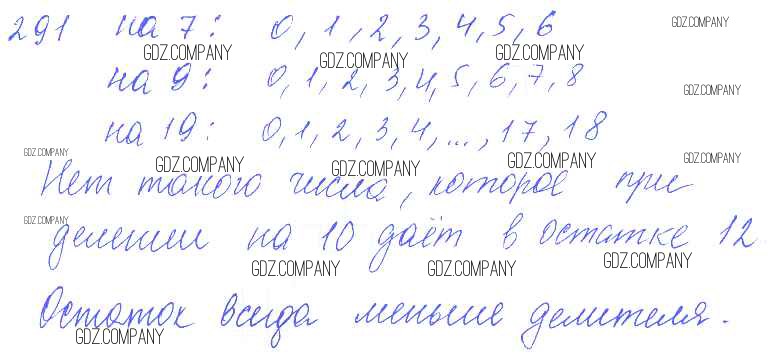 291 на 7: 0, 1, 2, 3, 4, 5, 6
GDZ.COMPANY
GDZ.COMPANY GDZ.COMPANY GDZ.COMPANY
на 9: 0, 1, 2, 3, 4, 5, 6, 7, 8
GDZ.COMPANY
на 19: 0, 1, 2, 3, 4, ..., 17, 18
GDZ.COMPANY GDZ.COMPANY GDZ.COMPANY GDZ.COMPANY GDZ.COMPANY
Нет такого числа, которое при
GDZ.COMPANY
делении на 10 даёт в остатке 12
GDZ.COMPANY GDZ.COMPANY GDZ.COMPANY
Остаток всегда меньше делителя.
GDZ.COMPANY